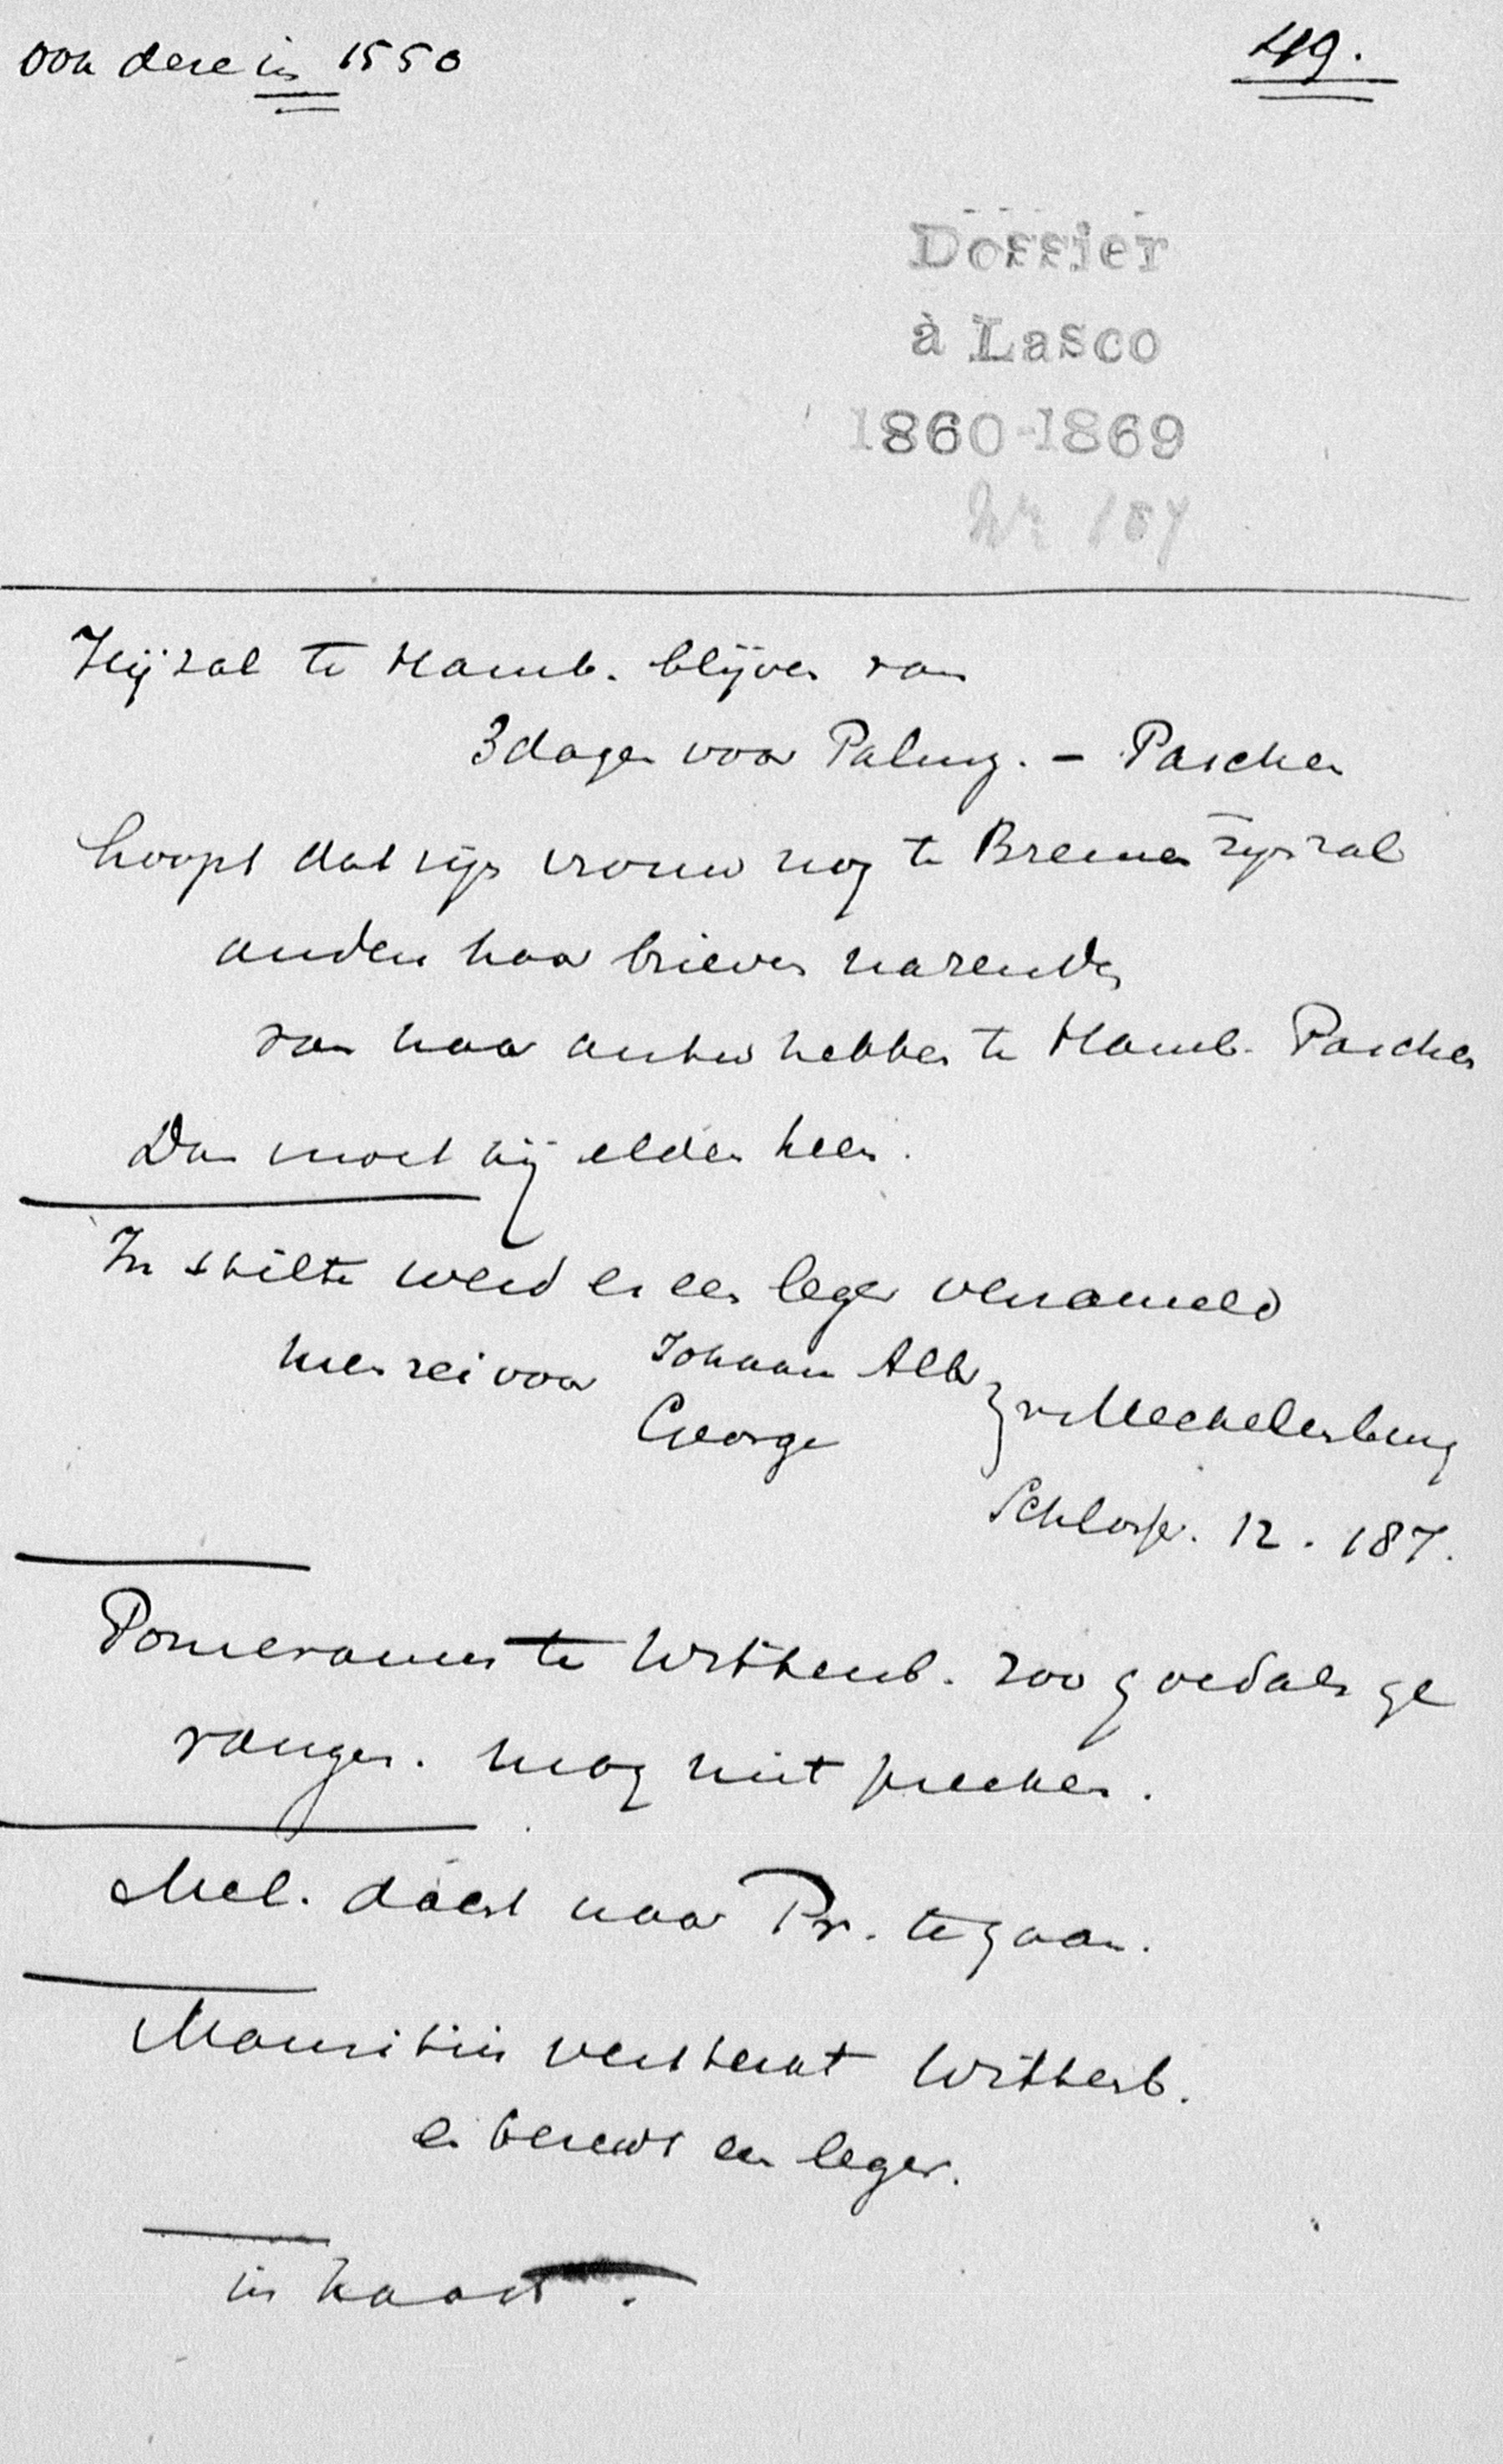 ook deze in 1550
49.
Dossier
à Lasco
1860-1869
Nr 187
Hij zal te Hamb. blijven van
3 dagen voor Palmz. - Paschen
hoopt dat zijn vrouw nog te Bremen zijn zal
anders haar brieven nazenden
van haar antw hebben te Hamb. Paschen
Dan moet hij elders heen.
In stilte werd er een leger verzameld
men zei voor Johann Alb
George
v. MecKelenburg
Schlosser. 12. 187.
Pomeranus te Wittenb. zoo goed als ge
vangen. mag niet preeken.
Mel. dacht naar Pr. te gaan.
Mauritius versterkt Wittenb.
en bereidt een leger.
in haast.